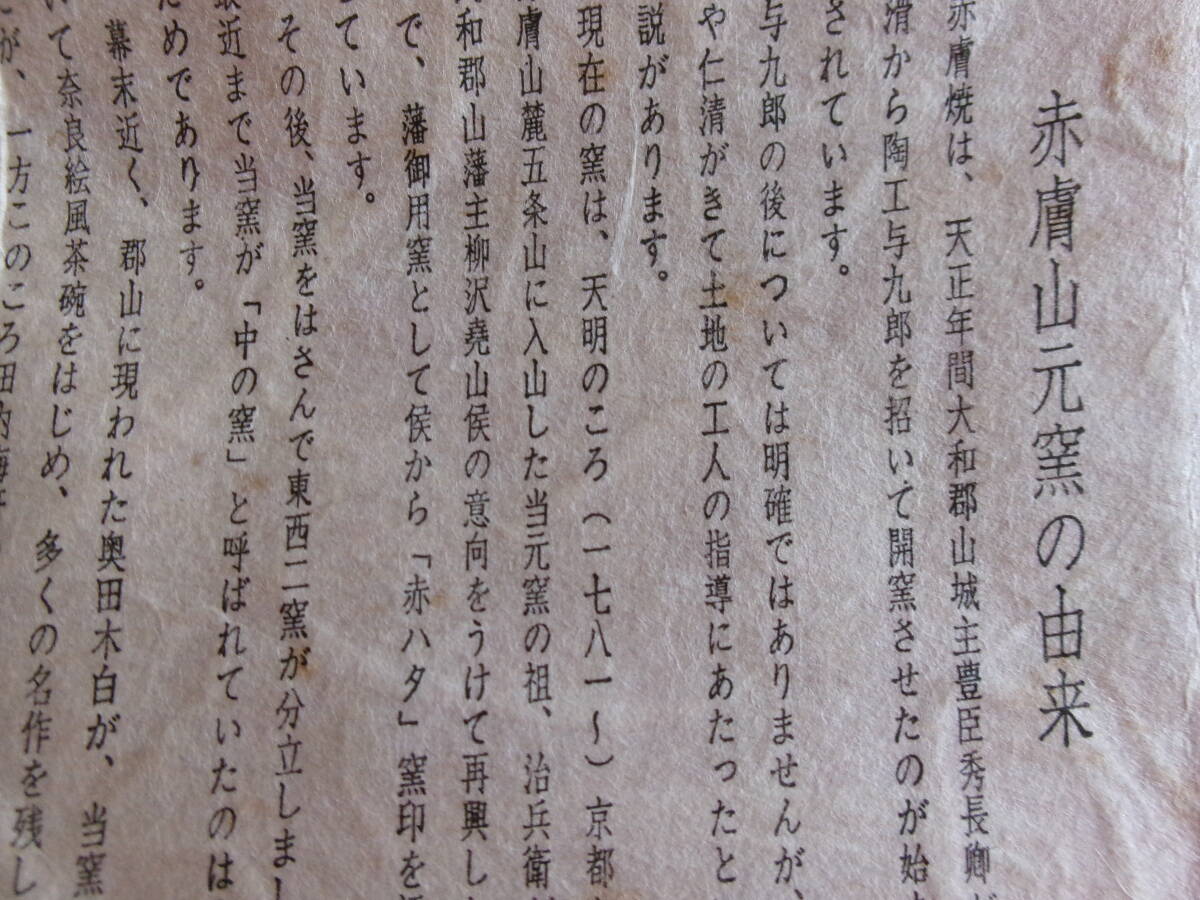 赤膚山元窯の由来
赤膚焼は、天正年間大和郡山城主豊臣秀長卿が
滑から陶工与九郎を招いて開窯させたのが始ま
されています。
与九郎の後については明確ではありませんが、
や仁清がきて土地の工人の指導にあたったと
説があります。
現在の窯は、天明のころ（一七八一〜）京都
膚山麓五条山に入山した当元窯の祖、治兵衛
和郡山藩主柳沢堯山侯の意向をうけて再興し
で、藩御用窯として侯から「赤ハタ」窯印を
ています。
その後、当窯をはさんで東西二窯が分立しまし
最近まで当窯が「中の窯」と呼ばれていたのは
ためであります。
幕末近く、郡山に現われた奥田木白が、当窯
いて奈良絵風茶碗をはじめ、多くの名作を残し
が、一方このころ田内